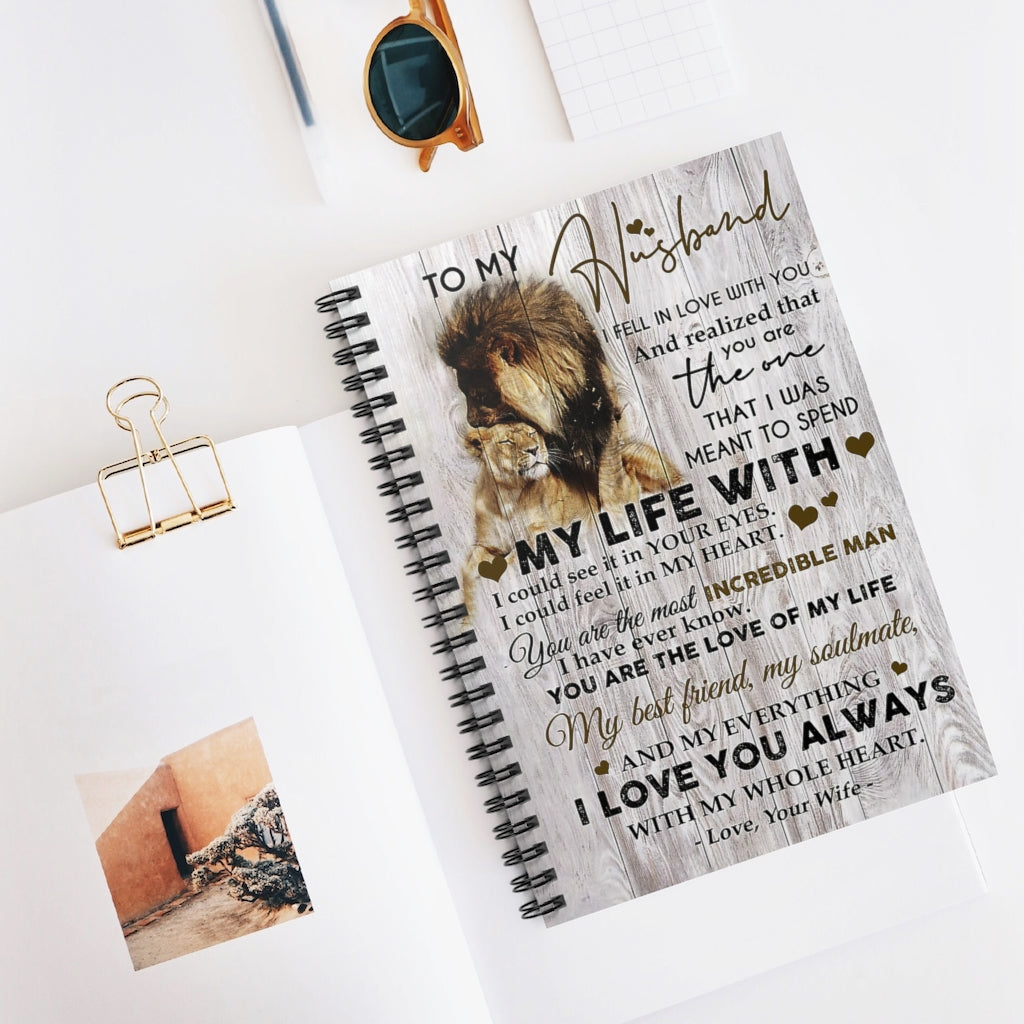 TO MY Husband
I FELL IN LOVE WITH YOU
And realized that
you are
the one
THAT I WAS
MEANT TO SPEND
MY LIFE WITH
I could see it in YOUR EYES.
I could feel it in MY HEART.
You are the most INCREDIBLE MAN
I have ever know.
YOU ARE THE LOVE OF MY LIFE
My best friend, my soulmate,
AND MY EVERYTHING
I LOVE YOU ALWAYS
WITH MY WHOLE HEART.
- Love, Your Wife -